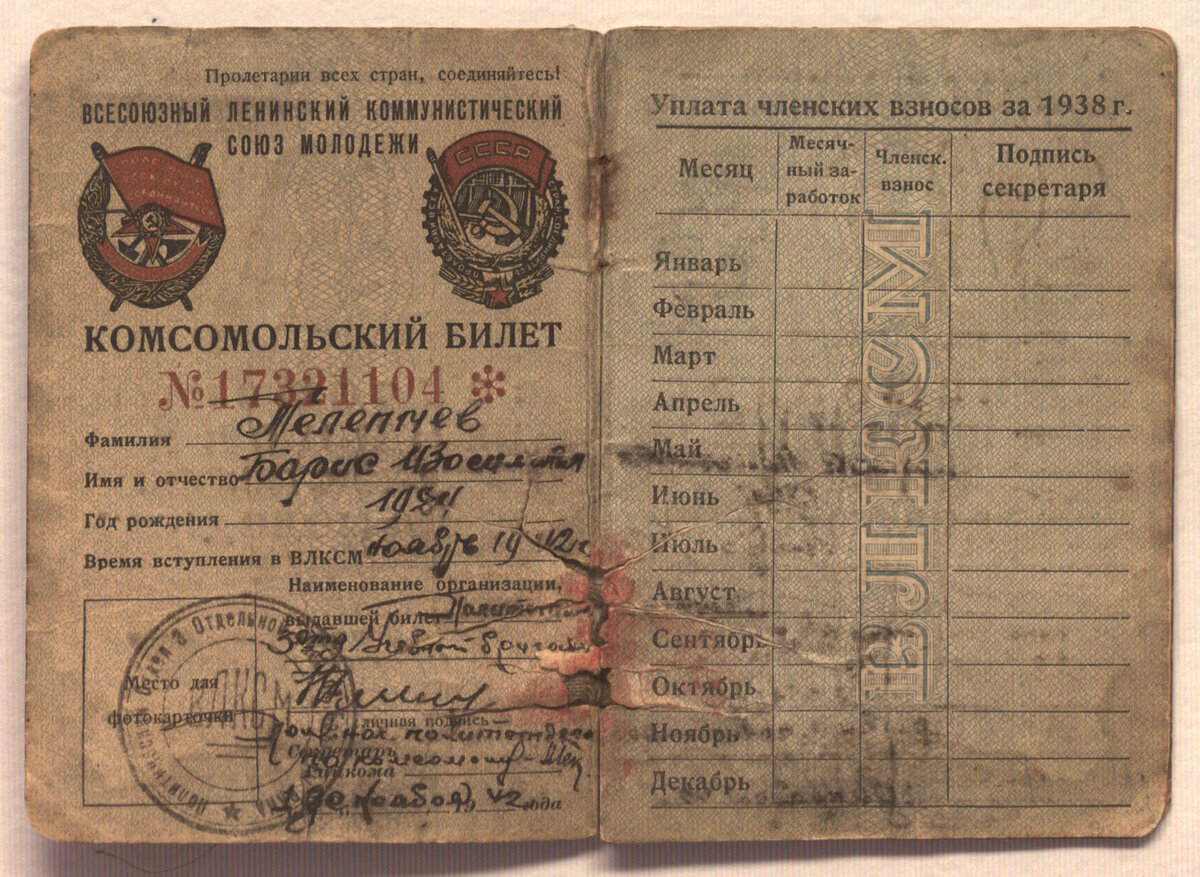 Пролетарии всех стран, соединяйтесь!
ВСЕСОЮЗНЫЙ ЛЕНИНСКИЙ КОММУНИСТИЧЕСКИЙ
СОЮЗ МОЛОДЕЖИ
СССР
КОМСОМОЛЬСКИЙ БИЛЕТ
№17321104 *
Фамилия Телепнев
Имя и отчество Борис
Год рождения 1924
Время вступления в ВЛКСМ ноябрь 1942 г
Наименование организации,
выдавшей билет
Учебной
Место для
фотокарточки
личная подпись
Секретарь
Райкома
1 декабря 42 года
Уплата членских взносов за 1938 г.
Месяц
Месяч-
ный за-
работок
Членск.
взнос
Подпись
секретаря
Январь
Февраль
Март
Апрель
Май
Июнь
Июль
Август
Сентябрь
Октябрь
Ноябрь
Декабрь
ВЛКСМ